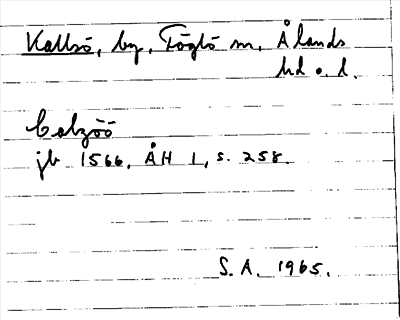 Kallsö, by, Föglö sn, Ålands
hd o. l.
Calzöö
jb 1566, ÅH 1, s. 258.
S.A. 1965.